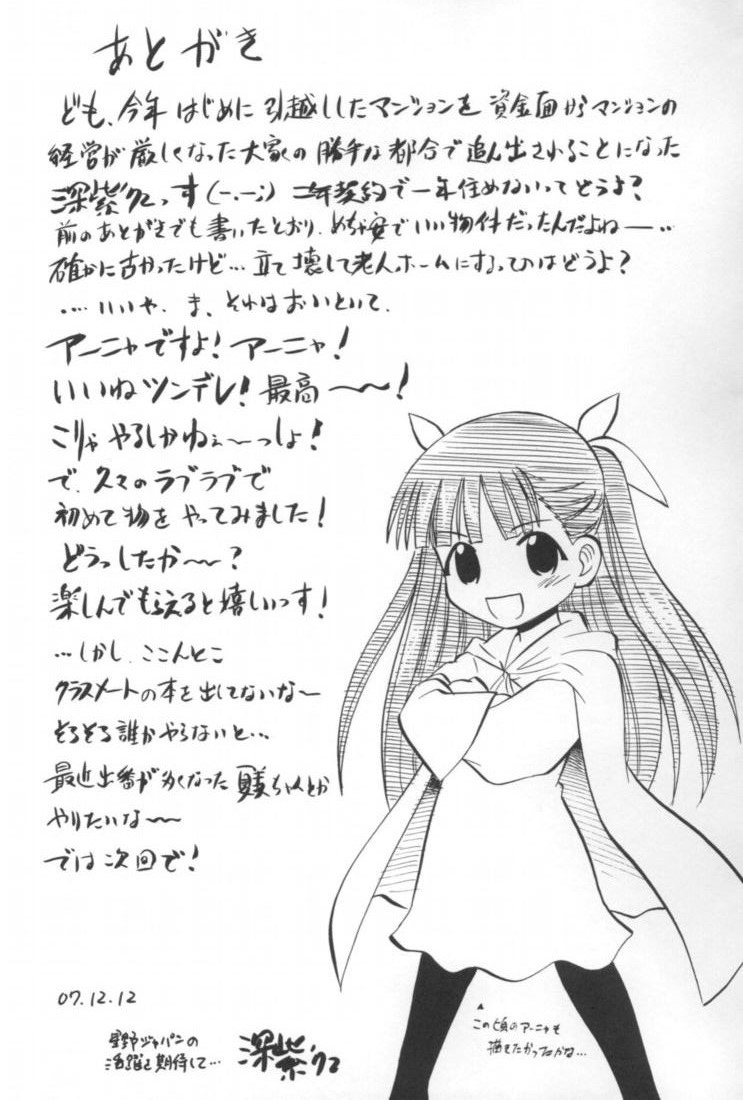 あとがき
ども、今年はじめに引越ししたマンションを資金面からマンションの
経営が厳しくなった大家の勝手な都合で追ん出されることになった
深紫クっす(－.－;) 二年契約で一年住めないってどうよ?
前のあとがきでも書いたとおり、めちゃ安でいい物件だったんだよねー…
確かに古かったけど…立て壊して老人ホームにするってのはどうよ?
….いいや、ま、それはおいといて、
アーニャですよ!アーニャ!
いいねツンデレ!最高〜〜!
こりゃやるしかねぇ〜っしょ!
で、久々のラブラブで
初めて物をやってみました!
どうっしたか〜〜?
楽しんでもらえると嬉しいっす!
…しかし、ここんとこ
クラスメートの本を出してないな〜
そろそろ誰かやらないと…
最近出番が多くなった ちゃんとか
やりたいな〜〜
では次回で!
07.12.12
星野ジャパンの
活躍を期待して…
深紫
この頃のアーニャも
描きたかったかな…